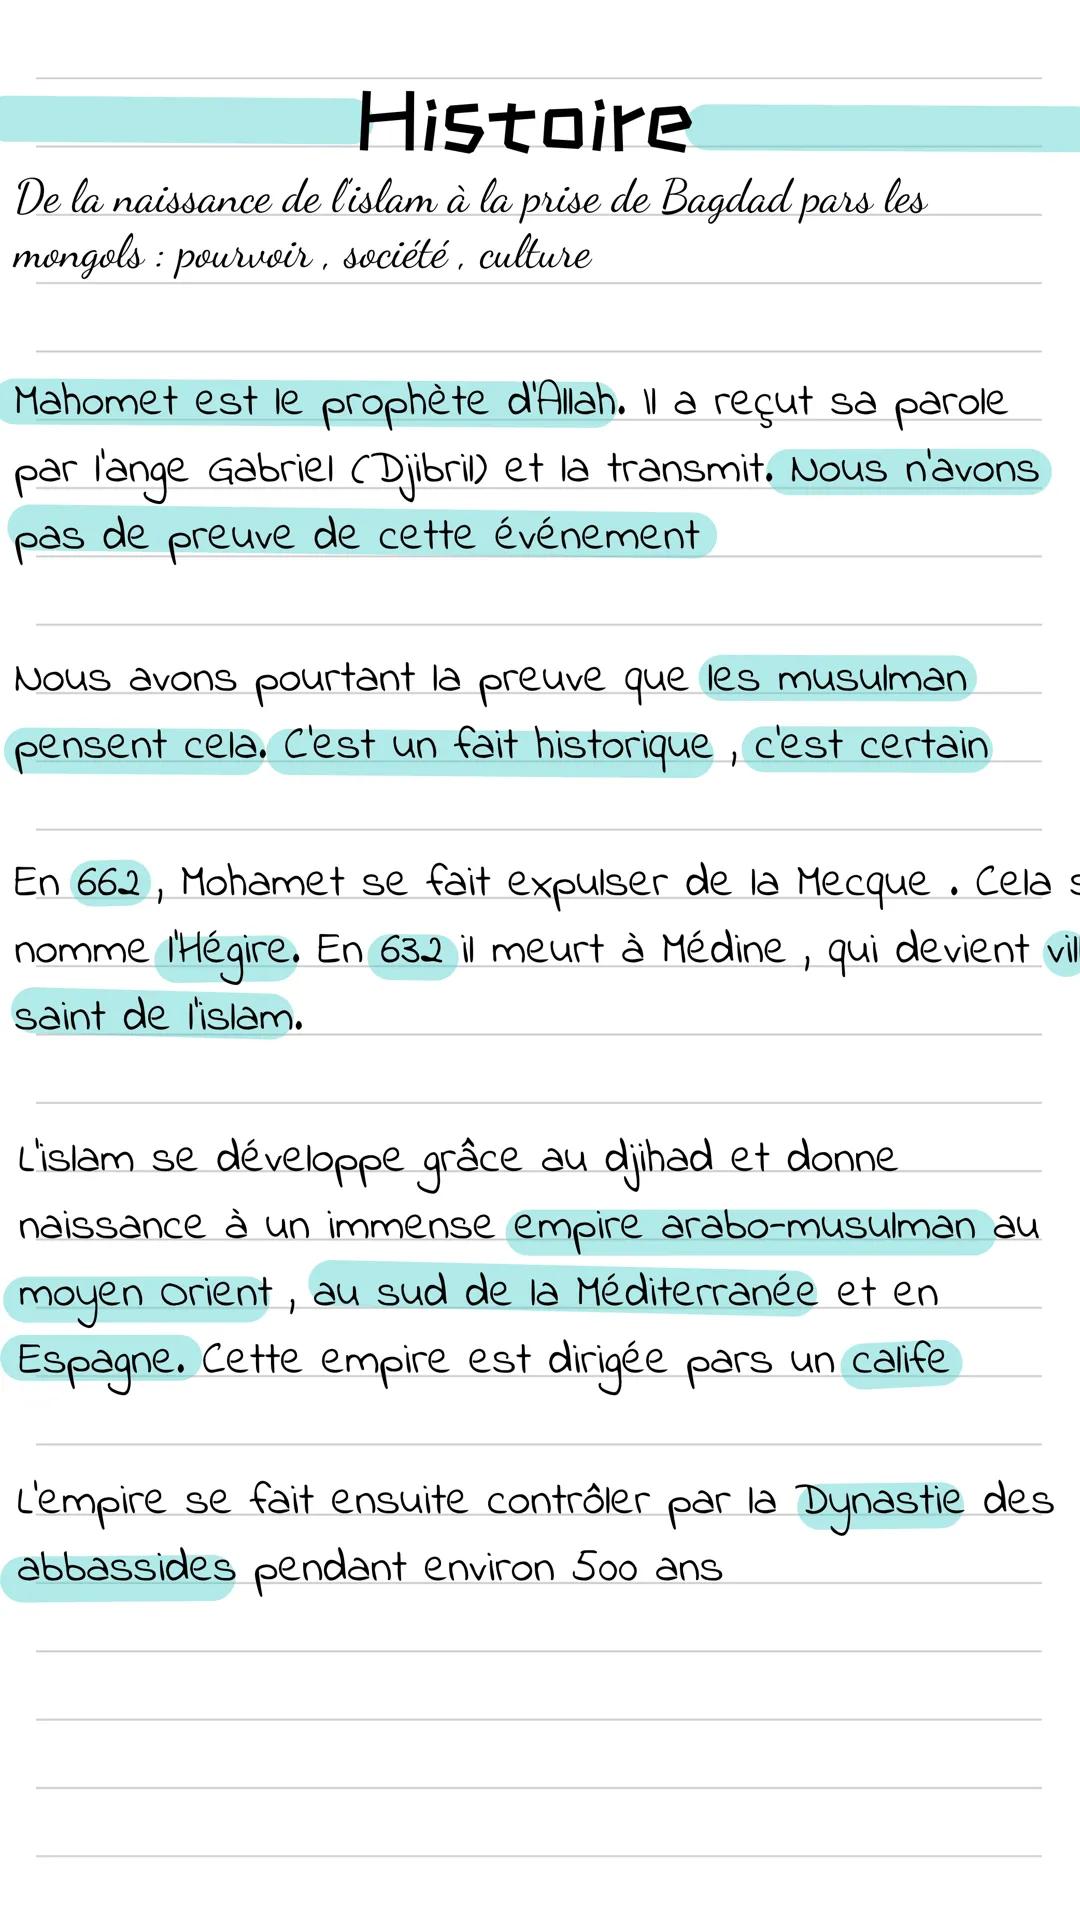 Histoire
De la naissance de l'islam à la prise de Bagdad pars les
mongols : pourvoir , société , culture
Mahomet est le prophète d'Allah. Il a reçut sa parole
par l'ange Gabriel (Djibril) et la transmit. Nous n'avons
pas de preuve de cette événement
Nous avons pourtant la preuve que les musulman
pensent cela. C'est un fait historique , c'est certain
En 662 , Mohamet se fait expulser de la Mecque . Cela
nomme l'Hégire. En 632 il meurt à Médine , qui devient
saint de l'islam.
L'islam se développe grâce au djihad et donne
naissance à un immense empire arabo-musulman au
moyen orient , au sud de la Méditerranée et en
Espagne. Cette empire est dirigée pars un calife
L'empire se fait ensuite contrôler par la Dynastie des
abbassides pendant environ 500 ans